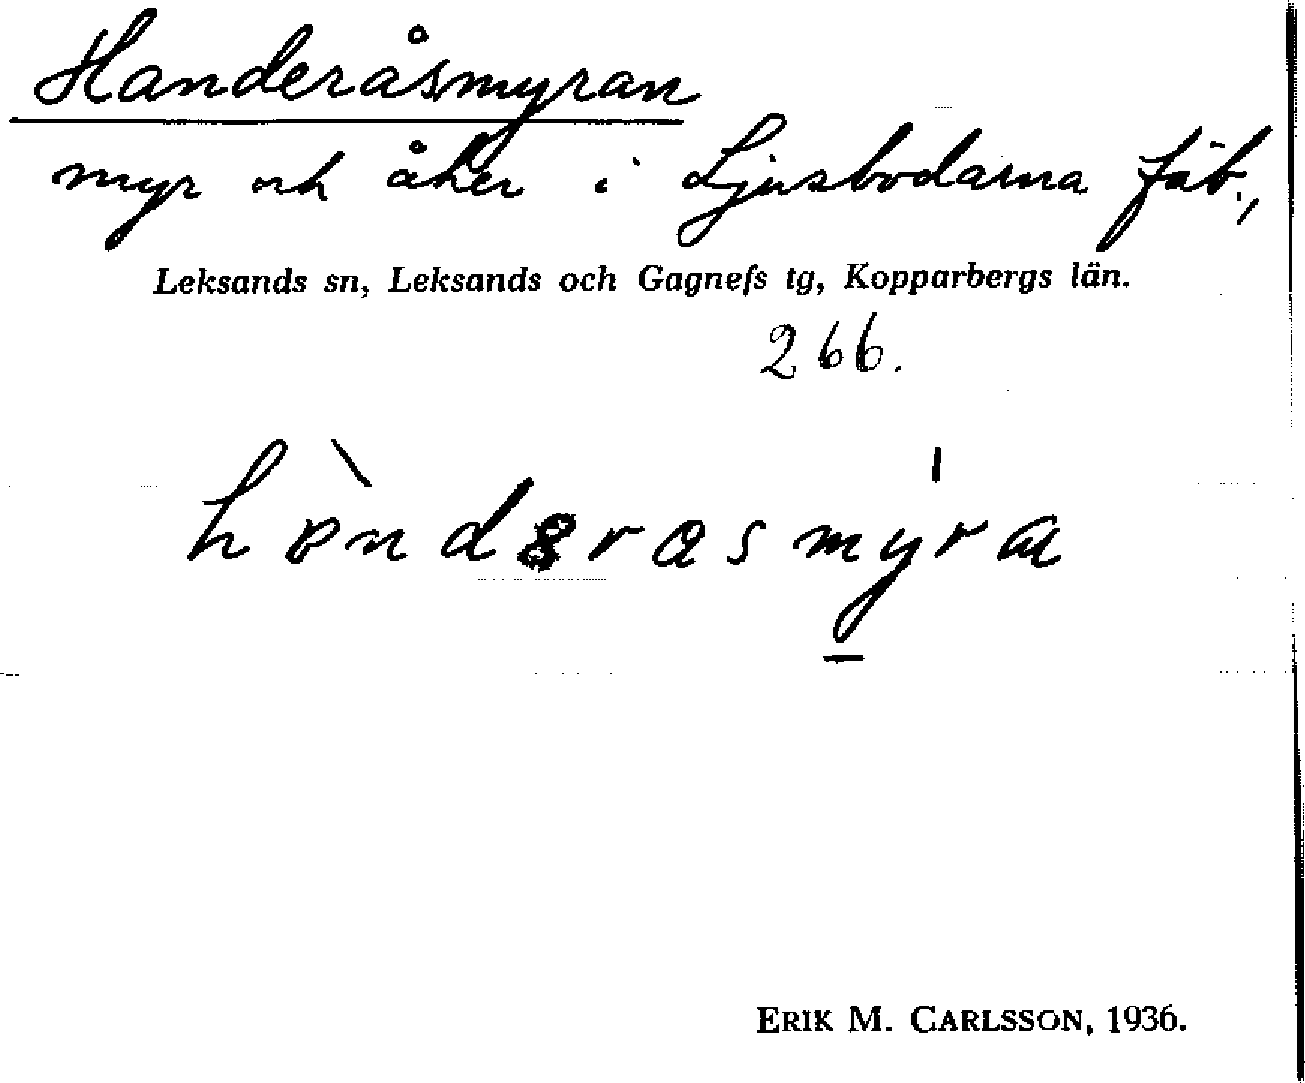 Handeråsmyran
myr och åker i Ljusbodarna fäb.,
Leksands sn, Leksands och Gagnefs tg, Kopparbergs län.
266.
ERIK M. CARLSSON, 1936.